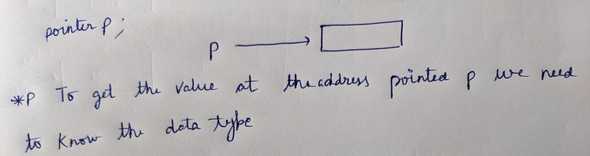 pointer P;
P
*P To get the value at the address pointed p we need
to know the data type